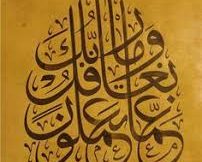 وما ربك
بغافل
عما تعملون